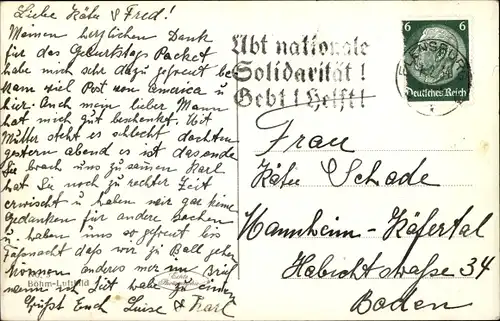 Liebe Käte & Fred!
Meinen herzlichen Dank
für das Geburtstags Packet
habe mich sehr dazu gefreut be-
kam viel Post von America u
hier. Auch mein lieber Mann
hat mich gut beschenkt. Mit
Mutter steht es schlecht dachten
gestern abend es ist das ende
Sie brach uns zusamen Karl
hat Sie noch zu rechter Zeit
erwischt u haben wir gar keine
Gedanken für andere Sachen
u. haben uns so gefreut bis
Fasnacht daß wir zu Ball gehen
können anders mer
wenn ich Zeit habe zu
Grüßt Euch Luise & Karl
Böhm-Luftbild
Echte
Übt nationale
Solidarität!
Gebt! Helft!
6 6
Deutsches Reich
Frau
Käte Schade
Mannheim-Käfertal
Habichtstraße 34
Baden